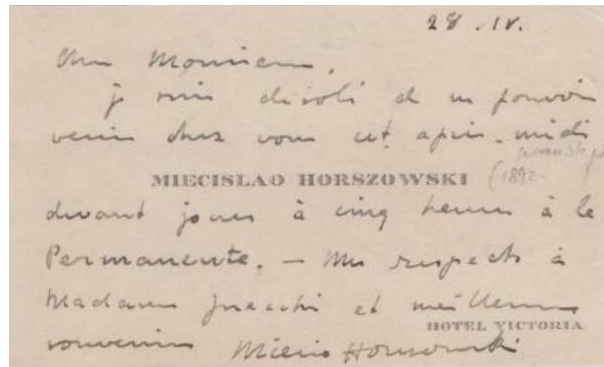 28.IV.
Cher Monsieur,
je suis désolé de ne pouvoir
venir chez vous cet après-midi
MIECISLAO HORSZOWSKI
(1892-
devant jouer à cinq heures à la
Permanente. — Mes respects à
Madame et meilleurs
HOTEL VICTORIA
souvenirs Miecio Horszowski